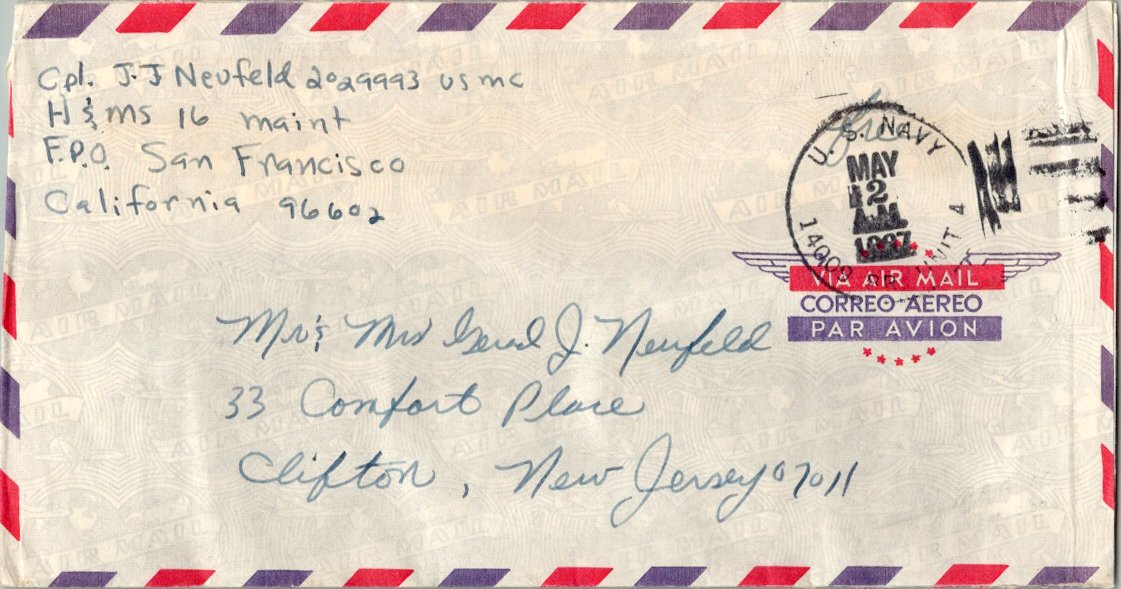 Cpl. J.J Neufeld 2029993 USMC
H & MS 16 maint
F.P.O. San Francisco
California 96602
Free
U. S. NAVY
MAY
12
A.M.
UNIT 4
VIA AIR MAIL
CORREO AEREO
PAR AVION
Mr & Mrs J. Neufeld
33 Comfort Place
Clifton, New Jersey 07011